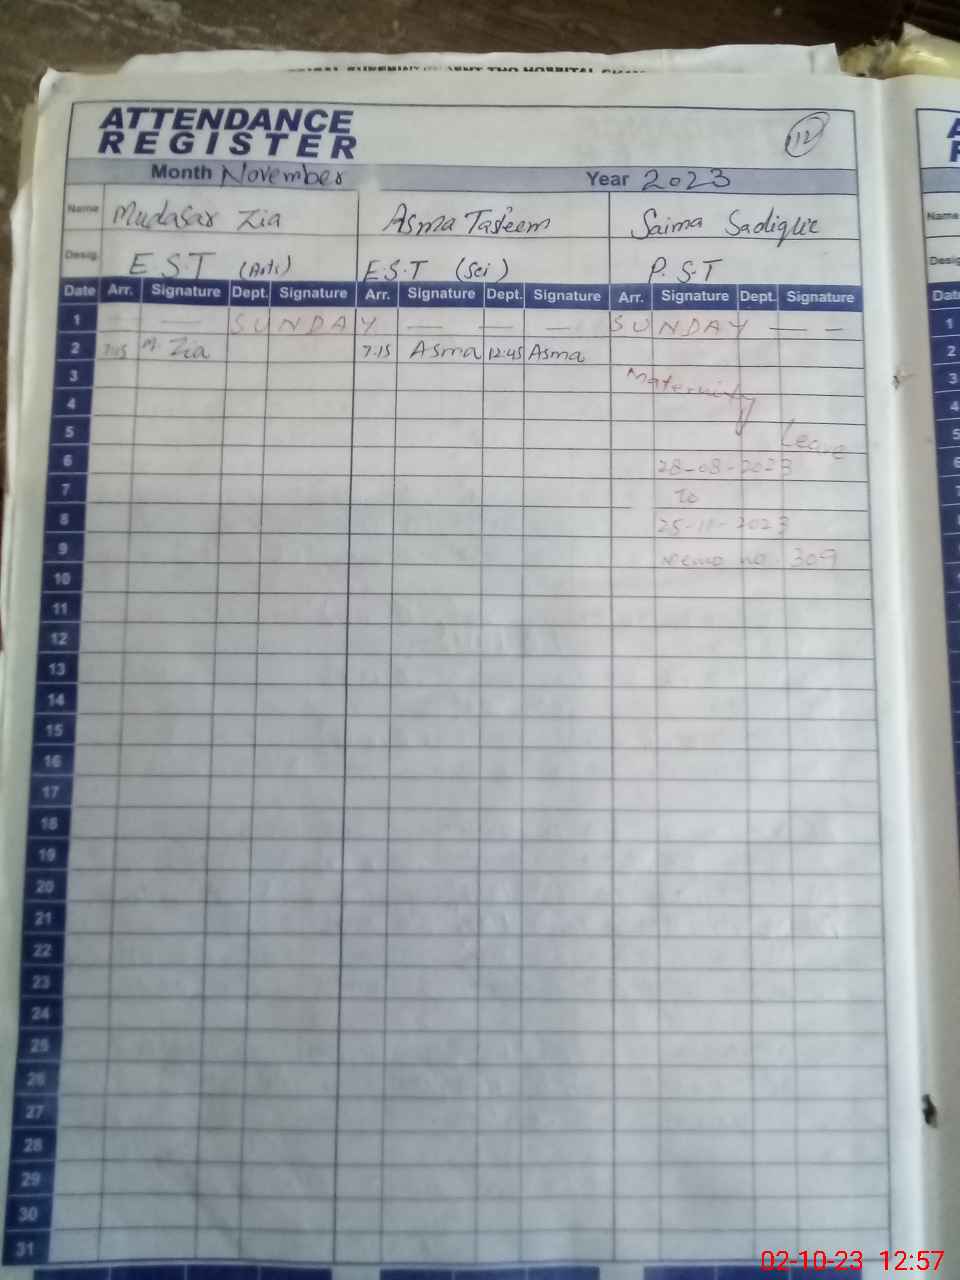 ATTENDANCE
REGISTER
12
Month November Year 2023
Name Mudasar Zia Asma Tasleem Saima Sadique
Desig. E.S.T (Arts) E.S.T (Sci) P.S.T
Date Arr. Signature Dept. Signature Arr. Signature Dept. Signature Arr. Signature Dept. Signature
1 — — SUNDAY — — — SUNDAY — —
2 7:15 M. Zia 7:15 Asma 12:45 Asma
3 Maternity
4
5 Leave
6 28-08-2023
7 To
8 25-11-2023
9 Memo no. 309
10
11
12
13
14
15
16
17
18
19
20
21
22
23
24
25
26
27
28
29
30
31
Name
Desig
Date
1
2
3
4
5
6
7
8
9
10
11
02-10-23 12:57